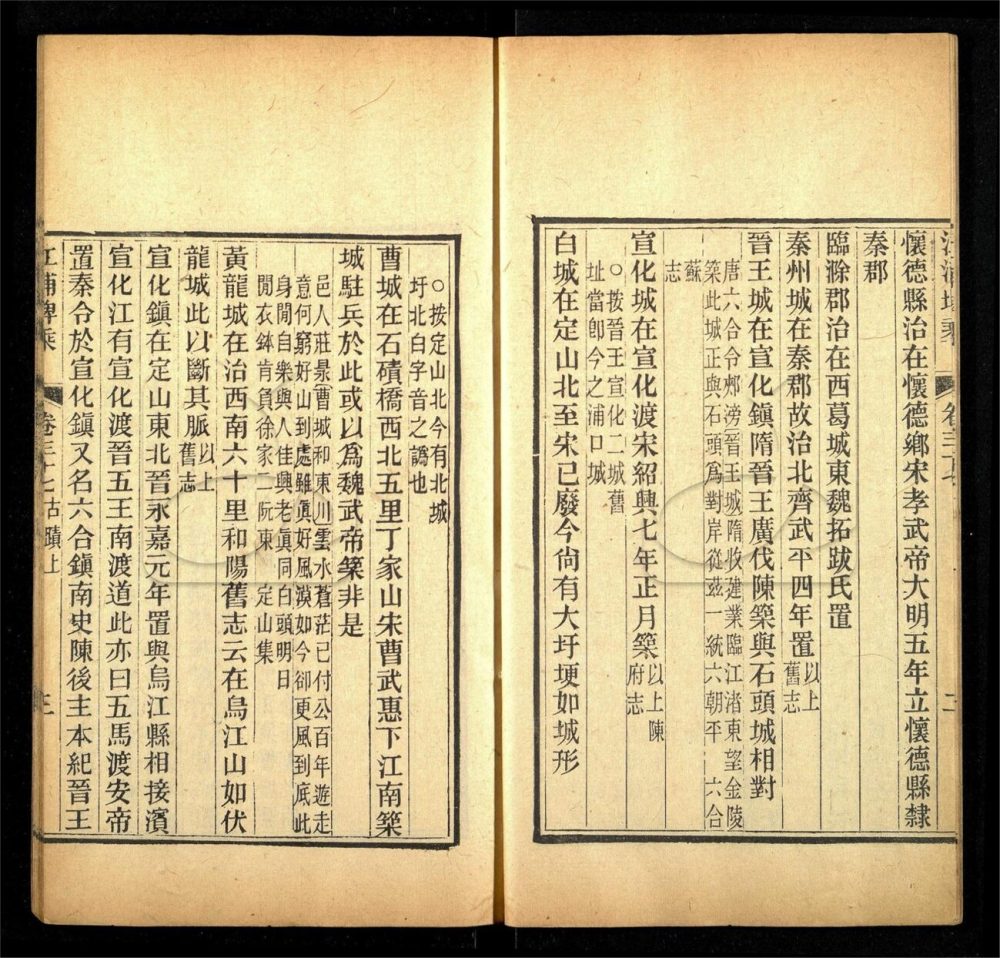 懷德縣治在懷德鄉宋孝武帝大明五年立懷德縣隸
秦郡
臨滁郡治在西葛城東魏拓跋氏置
秦州城在秦郡故治北齊武平四年置以上
舊志
晉王城在宣化鎭隋晉王廣伐陳築與石頭城相對
唐六合令郟滂晉王城隋收建業臨江渚東望金陵
築此城正與石頭爲對岸從茲一統六朝平 六合
蘇
志
宣化城在宣化渡宋紹興七年正月築以上陳
府志
○按晉王宣化二城舊
址當卽今之浦口城
白城在定山北至宋已廢今尙有大圩埂如城形
○按定山北今有北城
圩北白字音之譌也
曹城在石磧橋西北五里丁家山宋曹武惠下江南築
城駐兵於此或以爲魏武帝築非是
邑人莊㫤曹城和東川雲水蒼茫已付公百年遊走
意何窮好山到處雖眞好風漠如今卻更風到底此
身閒自樂與人佳興老眞同白頭明日
閒衣鉢肯負徐家二阮東 定山集
黃龍城在治西南六十里和陽舊志云在烏江山如伏
龍城此以斷其脈以上
舊志
宣化鎭在定山東北晉永嘉元年置與烏江縣相接濱
宣化江有宣化渡晉五王南渡道此亦曰五馬渡安帝
置秦令於宣化鎭又名六合鎭南史陳後主本紀晉王
江浦埤乘
卷三十七 古蹟上